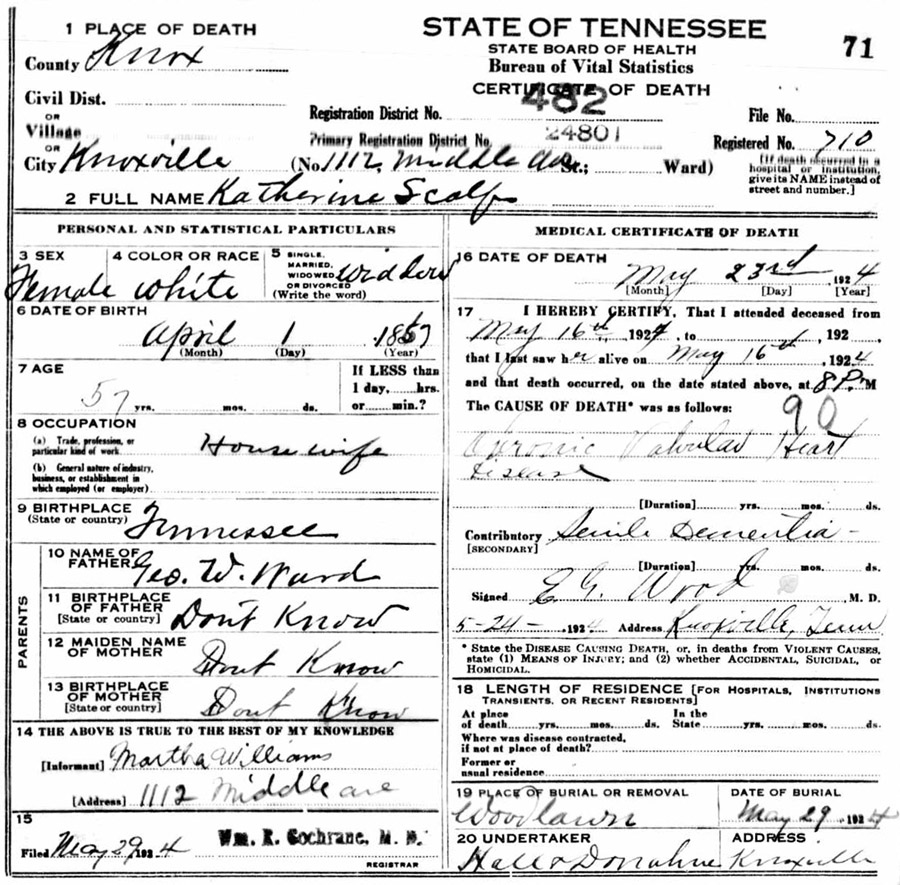 STATE OF TENNESSEE
STATE BOARD OF HEALTH
Bureau of Vital Statistics
CERTIFICATE OF DEATH
71
1 PLACE OF DEATH
County Knox
Civil Dist.
OR
Village
OR
City Knoxville (No. 1112, Middle Ave St.; Ward)
Registration District No. 482
Primary Registration District No. 24801
File No.
Registered No. 710
[If death occurred in a
hospital or institution,
give its NAME instead of
street and number.]
2 FULL NAME Katherine Scalf
PERSONAL AND STATISTICAL PARTICULARS
3 SEX
Female
4 COLOR OR RACE
White
5 SINGLE,
MARRIED,
WIDOWED
OR DIVORCED
(Write the word)
Widdow
6 DATE OF BIRTH
April 1 1867
(Month) (Day) (Year)
7 AGE
57 yrs. mos. ds.
If LESS than
1 day, hrs.
or min.?
8 OCCUPATION
(a) Trade, profession, or
particular kind of work House wife
(b) General nature of industry,
business, or establishment in
which employed (or employer)
9 BIRTHPLACE
(State or country) Tennessee
PARENTS
10 NAME OF
FATHER Geo. W. Ward
11 BIRTHPLACE
OF FATHER
[State or country] Don't Know
12 MAIDEN NAME
OF MOTHER Dont Know
13 BIRTHPLACE
OF MOTHER
[State or country] Dont Know
14 THE ABOVE IS TRUE TO THE BEST OF MY KNOWLEDGE
[Informant] Martha Williams
[Address] 1112 Middle ave
15
Filed May 29 1924 Wm. R. Cochrane, M. D.
REGISTRAR
MEDICAL CERTIFICATE OF DEATH
16 DATE OF DEATH
May 23rd 1924
[Month] [Day] [Year]
17 I HEREBY CERTIFY, That I attended deceased from
May 16th, 1924, to , 192
that I last saw her alive on May 16th, 1924
and that death occurred, on the date stated above, at 8 P. M
The CAUSE OF DEATH* was as follows:
90
Chronic Valvular Heart
Disease
[Duration] yrs. mos. ds.
Contributory Senile Dementia -
[SECONDARY]
[Duration] yrs. mos. ds.
Signed E. G. Wood M. D.
5-24- 1924 Address Knoxville, Tenn
* State the DISEASE CAUSING DEATH, or, in deaths from VIOLENT CAUSES,
state (1) MEANS OF INJURY; and (2) whether ACCIDENTAL, SUICIDAL, or
HOMICIDAL.
18 LENGTH OF RESIDENCE [FOR HOSPITALS, INSTITUTIONS
TRANSIENTS, OR RECENT RESIDENTS]
At place
of death yrs. mos. ds.
In the
State yrs. mos. ds.
Where was disease contracted,
if not at place of death?
Former or
usual residence
19 PLACE OF BURIAL OR REMOVAL
Woodlawn
DATE OF BURIAL
May 29, 1924
20 UNDERTAKER
Hall & Donahue
ADDRESS
Knoxville